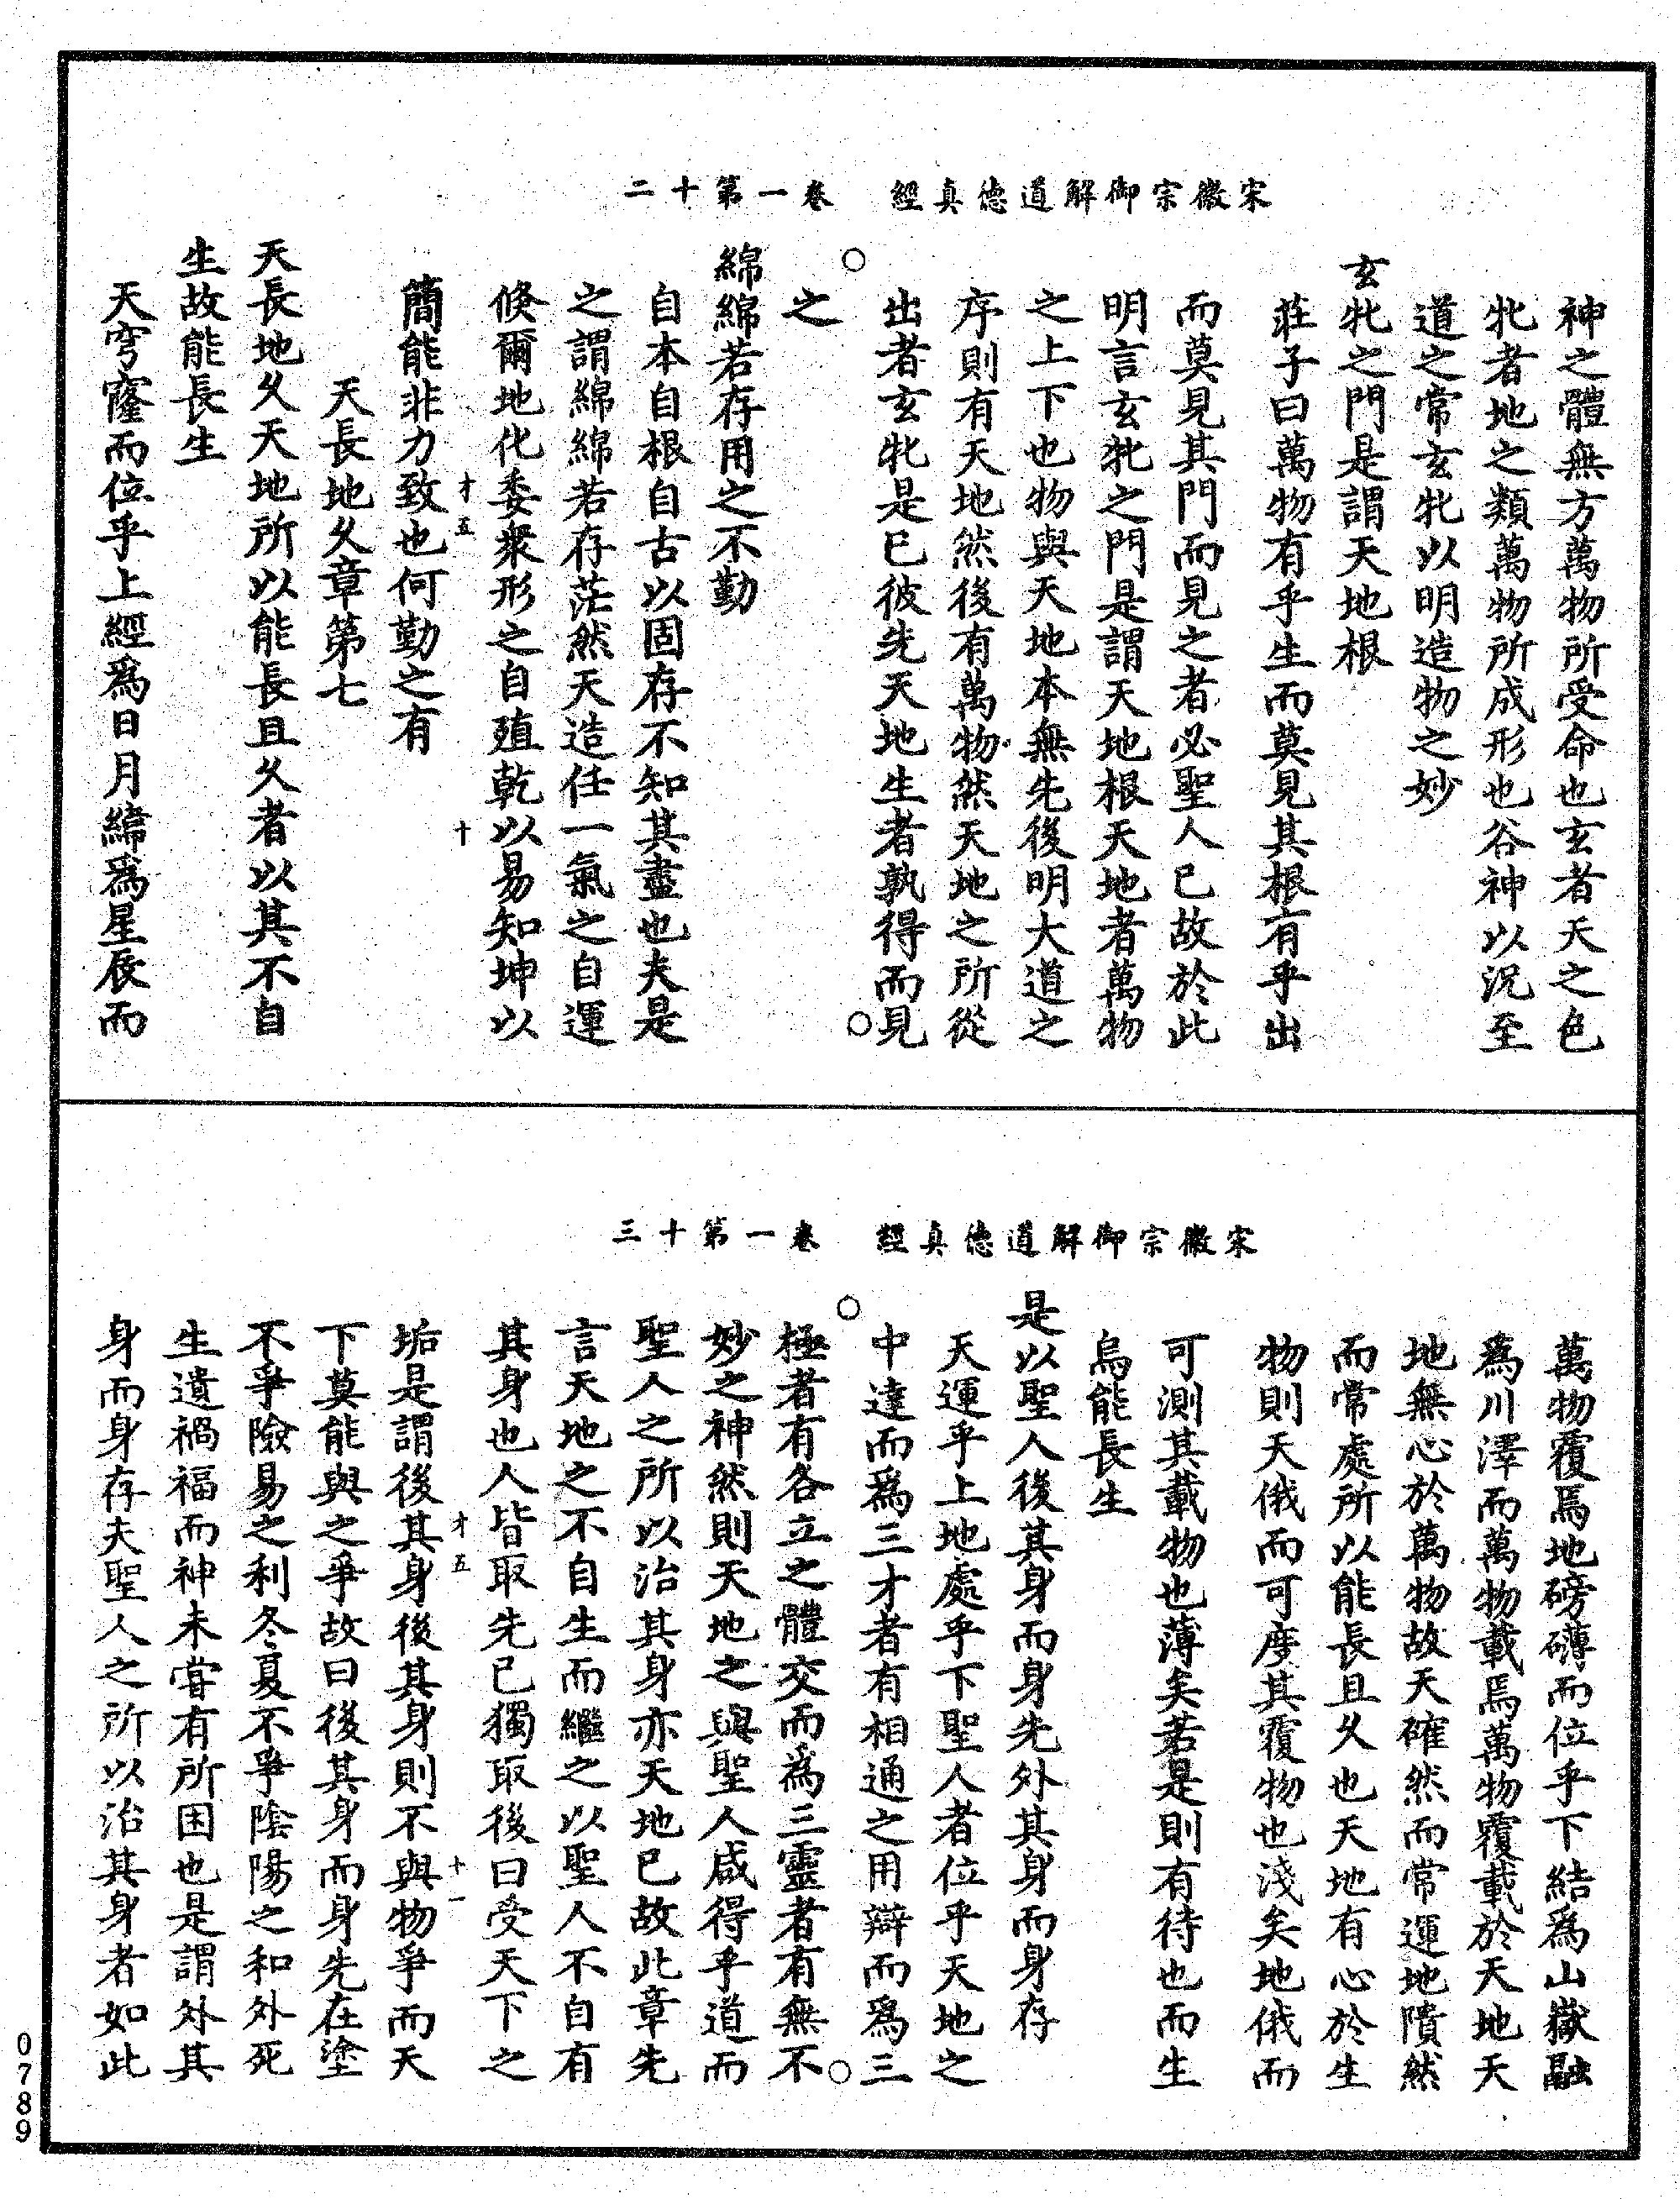 宋徽宗御解道德真經　卷一第十二
神之體無方萬物所受命也玄者天之色
牝者地之類萬物所成形也谷神以況至
道之常玄牝以明造物之妙
玄牝之門是謂天地根
莊子曰萬物有乎生而莫見其根有乎出
而莫見其門而見之者必聖人已故於此
明言玄牝之門是謂天地根天地者萬物
之上下也物與天地本無先後明大道之
序則有天地然後有萬物然天地之所從
出者玄牝是已彼先天地生者孰得而見
之
綿綿若存用之不勤
自本自根自古以固存不知其盡也夫是
之謂綿綿若存茫然天造任一氣之自運
倏爾地化委衆形之自殖乾以易知坤以
才五　十
簡能非力致也何勤之有
天長地久章第七
天長地久天地所以能長且久者以其不自
生故能長生
天穹窿而位乎上經爲日月緯爲星辰而
宋徽宗御解道德真經　卷一第十三
萬物覆焉地磅礴而位乎下結爲山嶽融
爲川澤而萬物載焉萬物覆載於天地天
地無心於萬物故天確然而常運地隤然
而常處所以能長且久也天地有心於生
物則天俄而可度其覆物也淺矣地俄而
可測其載物也薄矣若是則有待也而生
烏能長生
是以聖人後其身而身先外其身而身存
天運乎上地處乎下聖人者位乎天地之
中達而爲三才者有相通之用辯而爲三
極者有各立之體交而爲三靈者有無不
妙之神然則天地之與聖人咸得乎道而
聖人之所以治其身亦天地已故此章先
言天地之不自生而繼之以聖人不自有
其身也人皆取先已獨取後曰受天下之
才五　十一
垢是謂後其身後其身則不與物爭而天
下莫能與之爭故曰後其身而身先在塗
不爭險易之利冬夏不爭陰陽之和外死
生遺禍福而神未嘗有所困也是謂外其
身而身存夫聖人之所以治其身者如此
0789